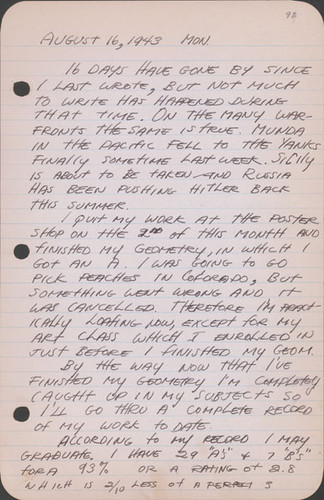 98
AUGUST 16, 1943 MON.
16 DAYS HAVE GONE BY SINCE
I LAST WROTE, BUT NOT MUCH
TO WRITE HAS HAPPENED DURING
THAT TIME. ON THE MANY WAR-
FRONTS THE SAME IS TRUE. MUNDA
IN THE PACIFIC FELL TO THE YANKS
FINALLY SOMETIME LAST WEEK. SICILY
IS ABOUT TO BE TAKEN AND RUSSIA
HAS BEEN PUSHING HITLER BACK
THIS SUMMER.
I QUIT MY WORK AT THE POSTER
SHOP ON THE 2ND OF THIS MONTH AND
FINISHED MY GEOMETRY, IN WHICH I
GOT AN A. I WAS GOING TO GO
PICK PEACHES IN COLORADO, BUT
SOMETHING WENT WRONG AND IT
WAS CANCELLED. THEREFORE I'M PRACT-
ICALLY LOAFING NOW, EXCEPT FOR MY
ART CLASS WHICH I ENROLLED IN
JUST BEFORE I FINISHED MY GEOM.
BY THE WAY NOW THAT I'VE
FINISHED MY GEOMETRY I'M COMPLETELY
CAUGHT UP IN MY SUBJECTS SO
I'LL GO THRU A COMPLETE RECORD
OF MY WORK TO DATE.
ACCORDING TO MY RECORD I MAY
GRADUATE. I HAVE 29 "A'S" & 7 "B'S"
FOR A 93% OR A RATING OF 2.8
WHICH IS 2/10 LESS OF A PERFECT 3